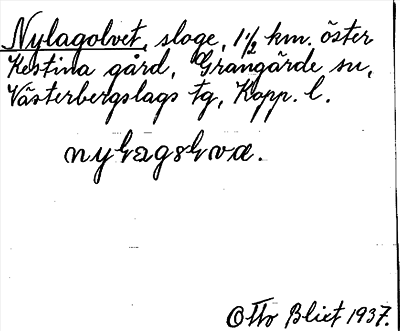 Nylagolvet, sloge, 1½ km. öster
Kestina gård, Grangärde sn,
Västerbergslags tg, Kopp. l.
Otto Blixt 1937.